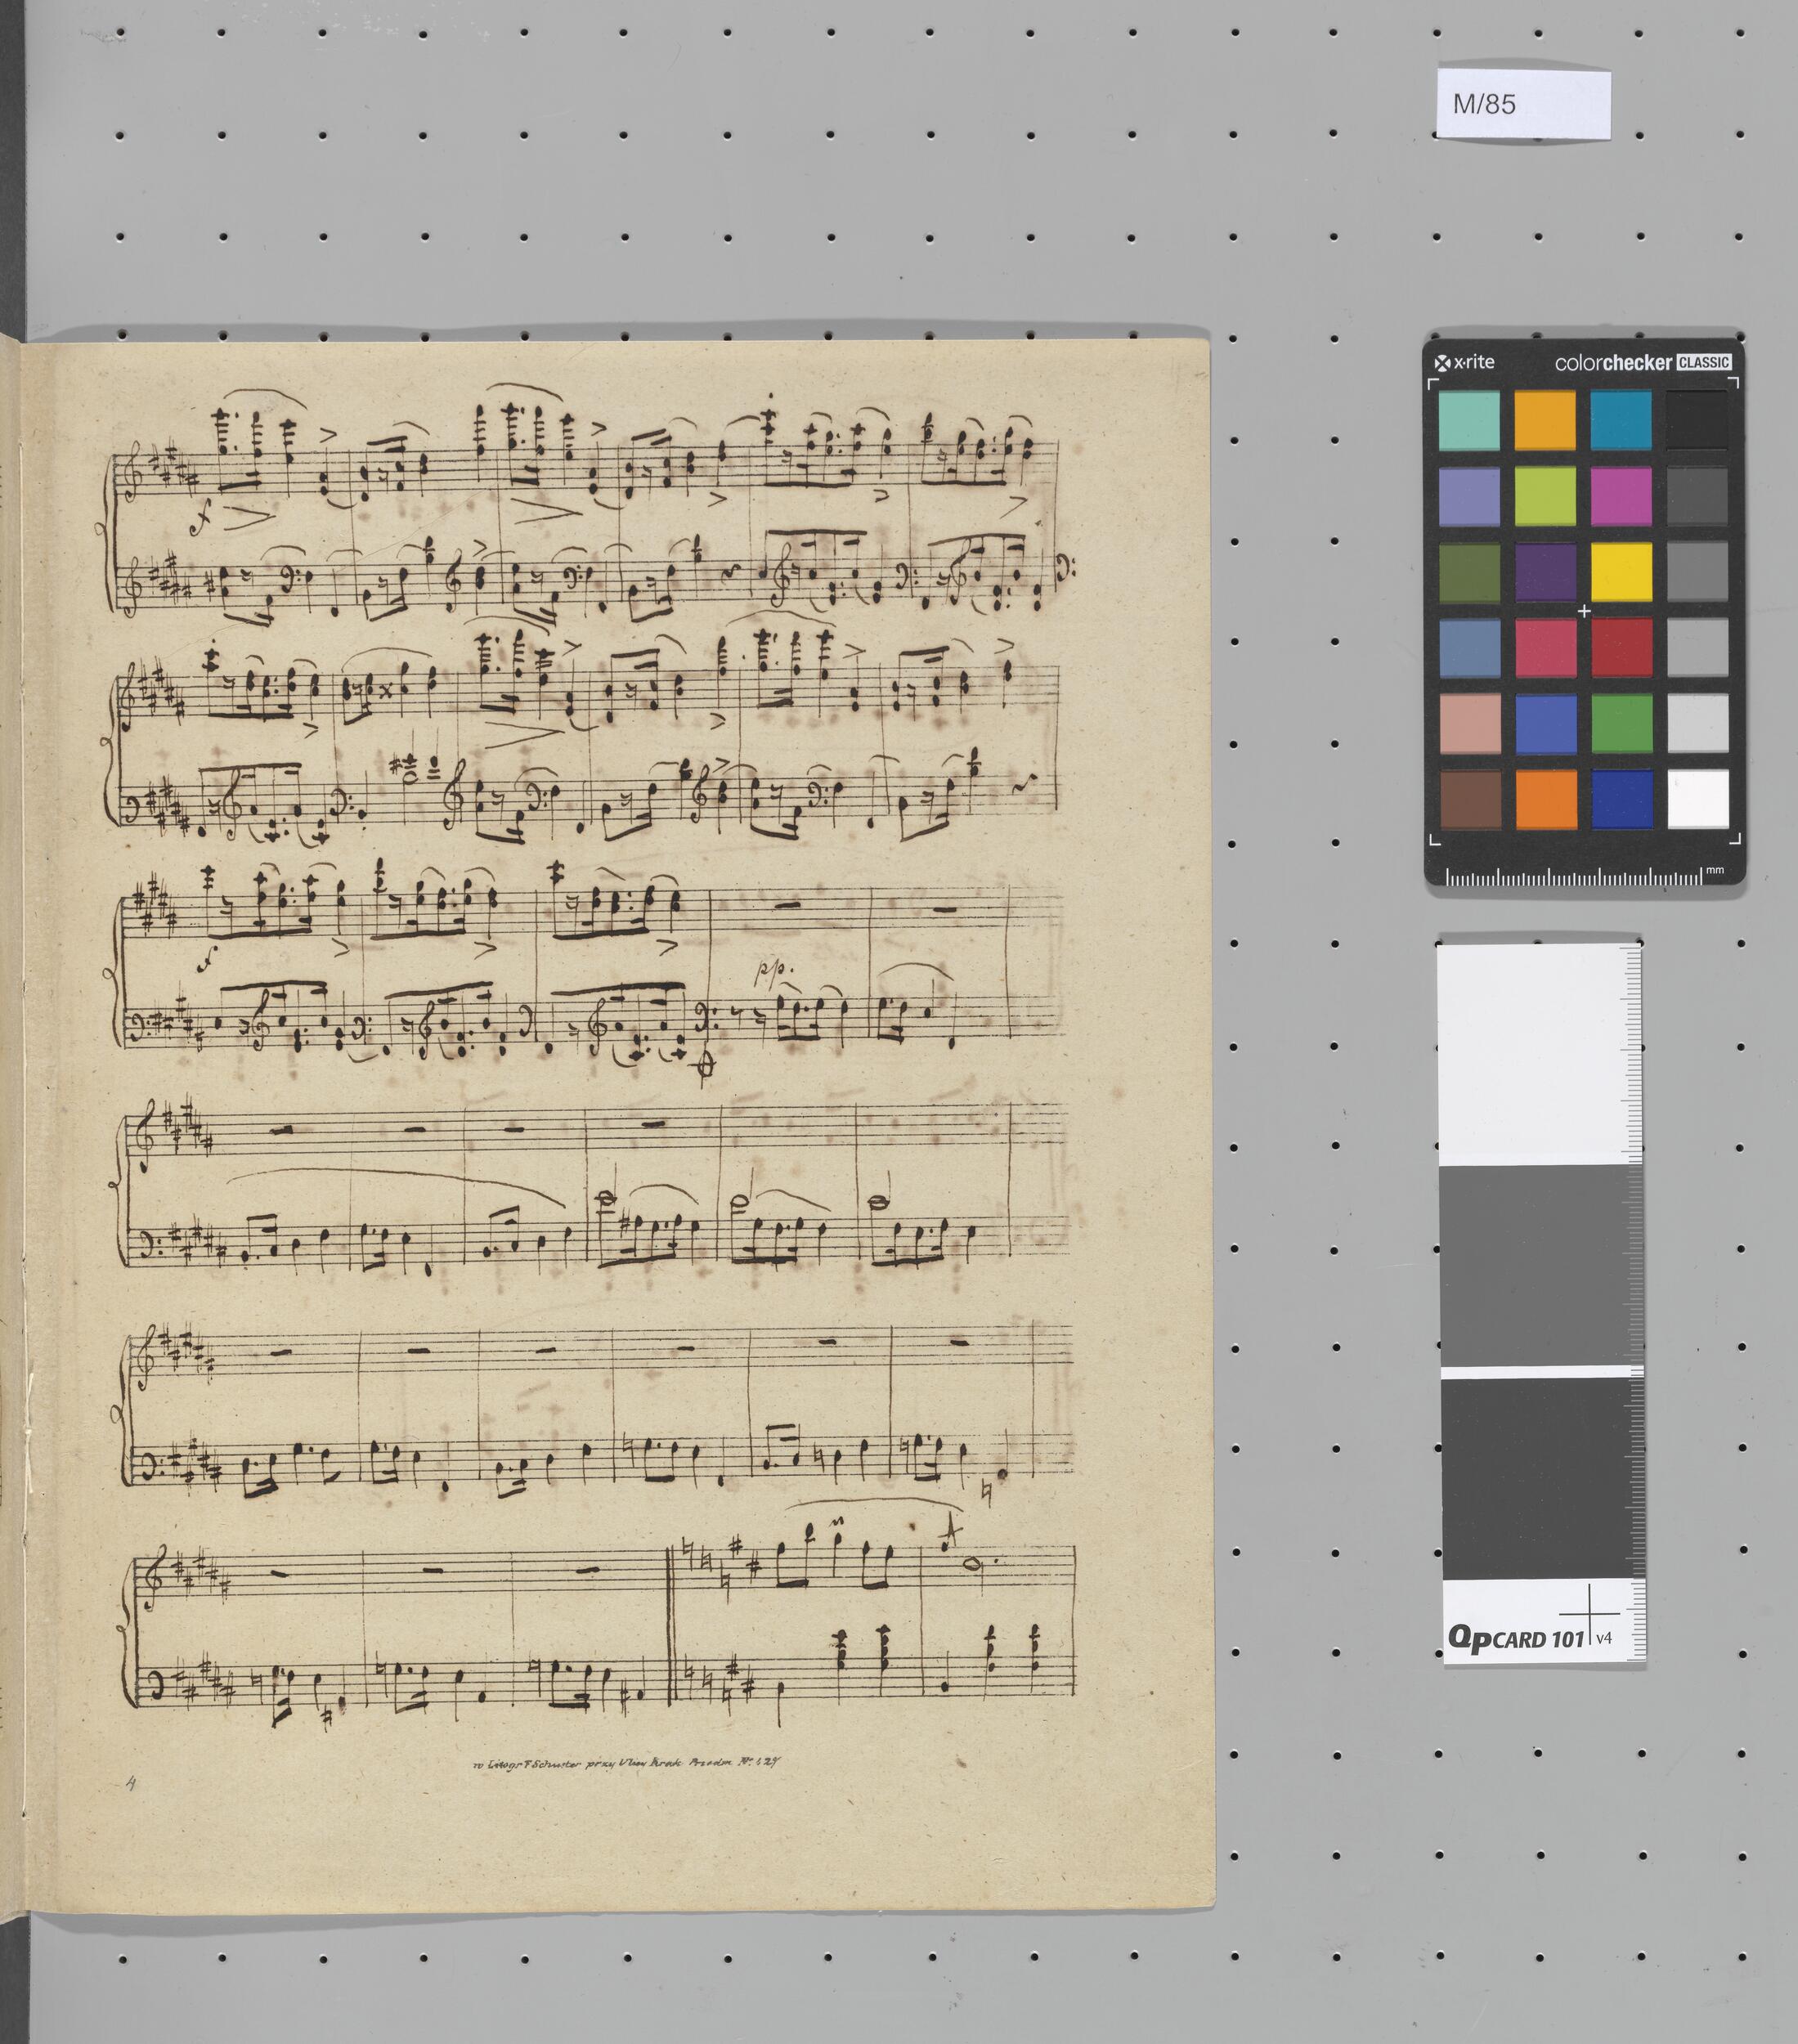 M/85
x·rite colorchecker CLASSIC
f
mm
f
pp.
w Litogr F Schuster przy Ulicy Krak Przedm Nº
4
QPCARD 101 v4